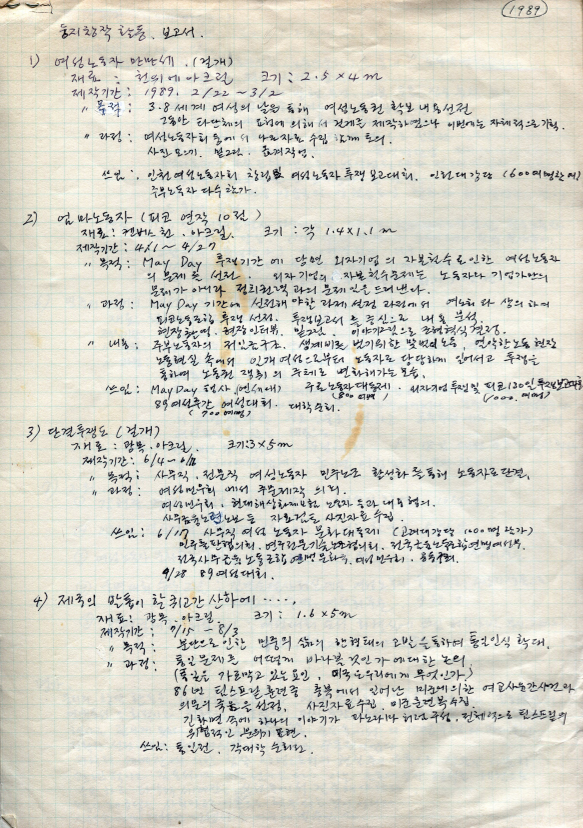 (1989)
둥지창작 활동. 보고서.
1) 여성노동자 만만세. (걸개)
재료 : 천위에 아크릴 크기 : 2.5 × 4 m
제작기간 : 1989. 2/22 ~ 3/2
〃 목적 : 3.8 세계 여성의 날을 통해 여성노동권 확보 내용선전
그동안 타단체의 요청에 의해서 걸개를 제작하였으나 이번에는 자체적으로 기획.
〃 과정 : 여성노동자회 등에서 나온자료 수집 함께 토의.
사진모으기. 밑그림. 옮겨작업.
쓰임 : 인천여성노동자회 창립및 여성노동자 투쟁보고대회. 인천대강당 (600여명 참여)
주부노동자 다수참가.
2) 엄마노동자 (피코 연작 10점)
재료 : 캔버스천. 아크릴. 크기 : 각 1.4×1.1 m
제작기간 : 4/1 ~ 4/27
〃 목적 : May Day 투쟁기간에 당면 외자기업의 자본철수로 인한 여성노동자
의 문제를 선전. 외자기업의 자본철수문제는 노동자와 기업가만의
문제가 아니라 정치권력과의 문제임을 드러낸다.
〃 과정 : May Day 기간에 선전해야할 과제 선정 과정에서 여성의 다 상의하여
피코노동조합 투쟁 선정. 투쟁보고서를 중심으로 내용 분석.
현장참여. 현장인터뷰. 밑그림. 이야기그림으로 표현형식결정.
〃 내용 : 주부노동자의 저임금구조. 생계비를 벌기위한 맞벌이노동, 열악한 노동현장
노동현실 속에서 인개여성으로부터 노동자로 당당하게 일어서고 투쟁을
통하여 노동권 쟁취의 주체로 변화해가는 모습.
쓰임 : May Day 행사 (연세대) 구로노동자대동제. 외자기업투쟁 및 피코 120일 투쟁보고대회
(800여명) (1000여명)
89여성주간 여성대회. 대학순회.
(700여명)
3) 단결투쟁도 (걸개)
재료 : 광목. 아크릴. 크기 : 3×5m
제작기간 : 6/4 ~
〃 목적 : 사무직. 전문직 여성노동자 민주노조 활성화를 통해 노동자로 단결.
〃 과정 : 여성민우회 에서 주문제작 의뢰.
여성민우회. 현대해상화재보험 노동자들과 내용협의.
사무금융노련 노보등 자료검토 사진자료수집.
쓰임 : 6/17 사무직 여성 노동자 문화대동제 (고려대강당 1000여명 참가)
민주출판협의회. 연구전문기술노조협의회. 전국금융노동조합연맹여성부.
전국사무금융노동조합연맹문화부. 여성민우회. 공동주최.
9/28 89여성대회.
4) 제국의 발톱이 할퀴고간 산하에 .....
재료 : 광목. 아크릴. 크기 : 1.6 × 5m
제작기간 : 7/15 ~ 8/3
〃 목적 : 분단으로 인한 민중의 삶의 한형태의 고발을 통하여 통일인식 확대.
〃 과정 : 통일문제를 어떻게 바라볼것인가에 대한 논의.
(통일을 가로막고 있는 요인, 미국은 우리에게 무엇인가)
86년 팀스프릴 훈련중 충북에서 일어난 미군에 의한 여고생강간사건과
의문의 죽음을 선정. 사진자료수집, 미군훈련복수집.
긴화면 속에 하나의 이야기가 파노라마처럼 구성, 전체적으로 팀스프릴의
위협적인 분위기 표현.
쓰임 : 통일전. 각대학 순회전.